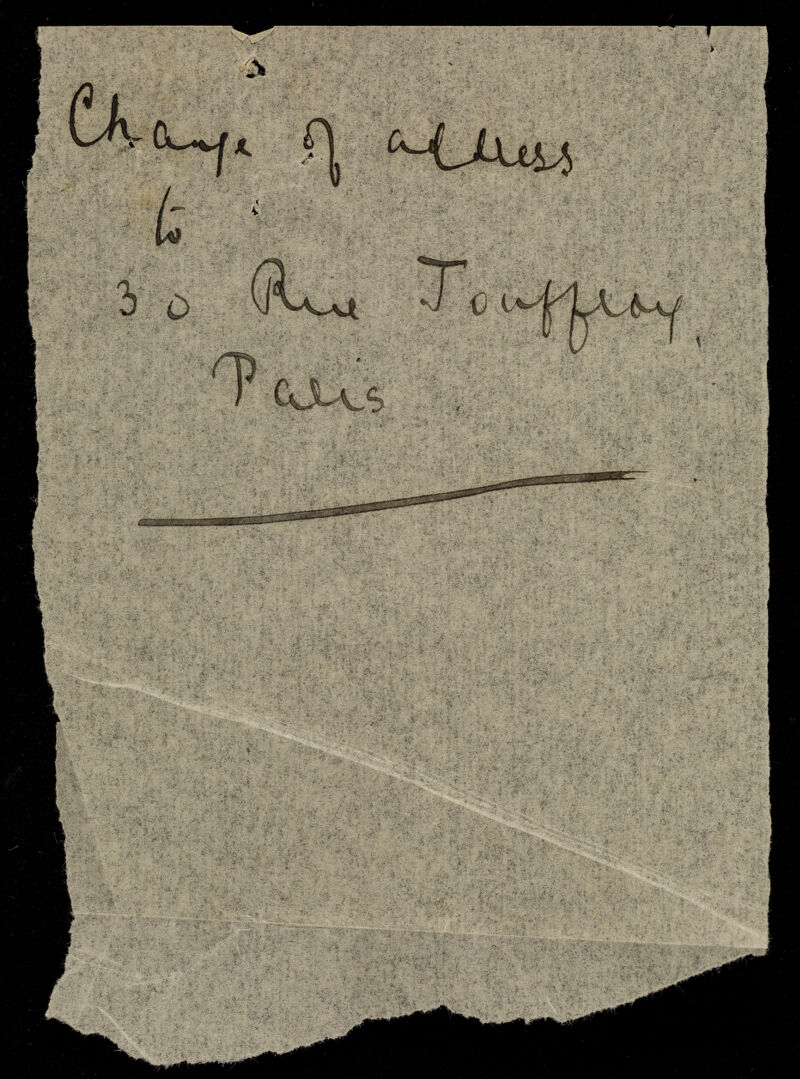 Change of address
to
30 Rue Jouffroy,
Paris